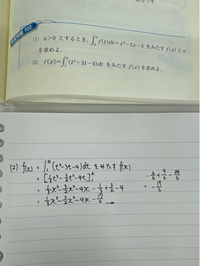 (1) a>0 とするとき、∫ₐˣ f(t)dt=x²-2x-3 をみたす f(x) と a
を求めよ。
(2) f(x)=∫₁ˣ(t²-3t-4)dt をみたす f(x) を求めよ。
(2) f(x) = ∫₁ˣ (t²-3t-4)dt をみたす f(x)
= [⅓t³-3/2t²-4t]₁ˣ
= ⅓x³-3/2x²-4x-
= ⅓x³-3/2x²-4x